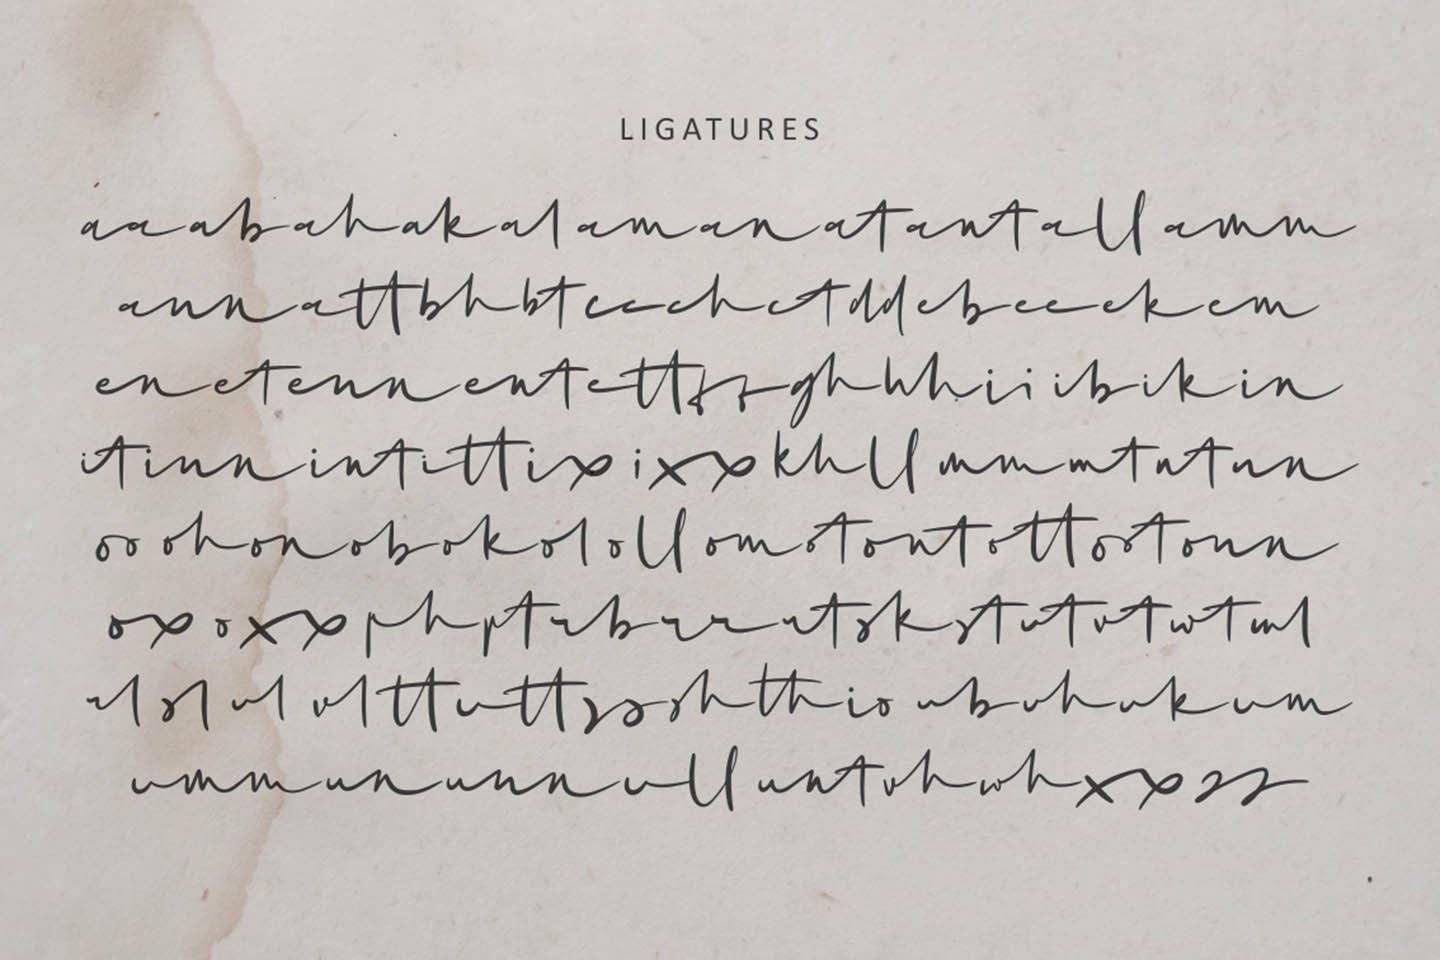 LIGATURES
aaabahakalamanatantallamm
annattbhbtccchctddebeeekem
enetennentettffghhhiiibikin
itinnintittixixxkhllmmmtntnn
ooohonobokolollomotontottoootonn
oxoxxphptrbrrrtskstutvtwtwl
rlslulvlttuttssshthioubuhukum
ummununnulluntvhwhxxzz